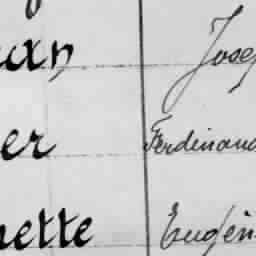 uan Jose
er Ferdinand
nette Eugén